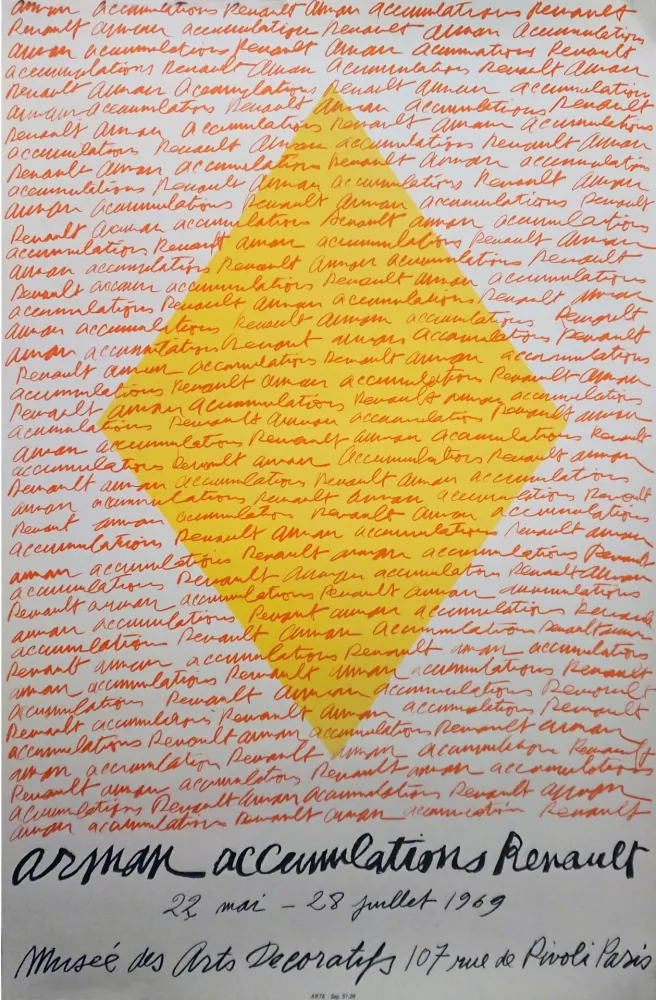 arman accumulations Renault arman accumulations Renault
Renault arman accumulations Renault arman accumulations
arman accumulations Renault arman accumulations Renault
accumulations Renault arman accumulations Renault arman
Renault arman accumulations Renault arman accumulations
arman accumulations Renault arman accumulations Renault
Renault arman accumulations Renault arman accumulations
accumulations Renault arman accumulations Renault arman
Renault arman accumulations Renault arman accumulations
accumulations Renault arman accumulations Renault arman
arman accumulations Renault arman accumulations Renault
Renault arman accumulations Renault arman accumulations
accumulations Renault arman accumulations Renault arman
arman accumulations Renault arman accumulations Renault
Renault accumulations Renault arman accumulations
accumulations Renault arman accumulations Renault arman
arman accumulations Renault arman accumulations Renault
arman accumulations Renault arman accumulations Renault
Renault arman accumulations Renault arman accumulations
accumulations Renault arman accumulations Renault arman
Renault arman accumulations Renault arman accumulations
accumulations Renault arman accumulations Renault arman
arman accumulations Renault arman accumulations Renault
accumulations Renault arman accumulations Renault arman
Renault arman accumulations Renault arman accumulations
arman accumulations Renault arman accumulations Renault
Renault arman accumulations Renault arman accumulations
accumulations Renault arman accumulations Renault arman
arman accumulations Renault arman accumulations Renault
accumulations Renault arman accumulations Renault arman
Renault arman accumulations Renault arman accumulations
arman accumulations Renault arman accumulations Renault
accumulations Renault arman accumulations Renault arman
Renault arman accumulations Renault arman accumulations
arman accumulations Renault arman accumulations Renault
accumulations Renault arman accumulations Renault
Renault accumulations Renault arman accumulations Renault
accumulations Renault arman accumulations Renault arman
arman accumulation Renault arman accumulations Renault
Renault arman accumulations Renault arman accumulations
accumulations Renault arman accumulations Renault arman
arman accumulations Renault arman accumulations Renault
arman accumulations Renault
22 mai - 28 juillet 1969
Musée des Arts Decoratifs 107 rue de Rivoli Paris